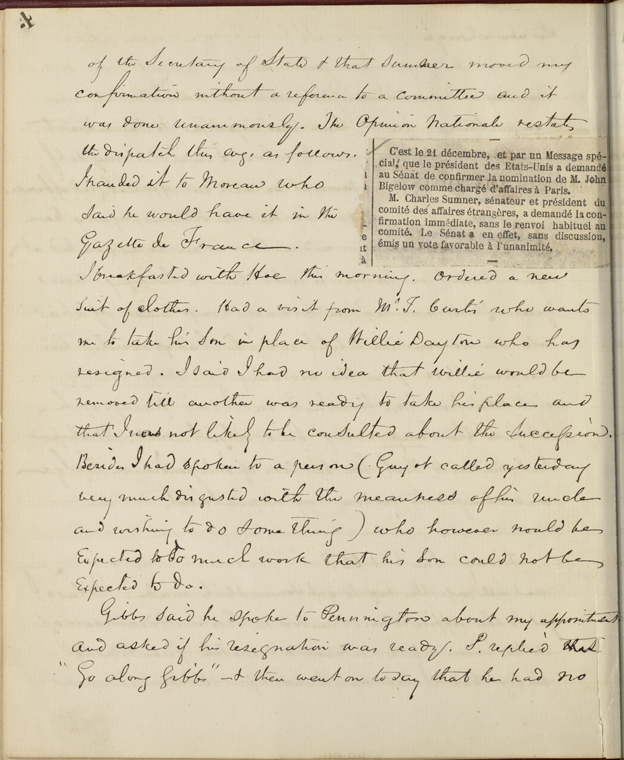 4
of the Secretary of State & that Sumner moved my
confirmation without a reference to a committee and it
was done unanimously. The Opinion Nationale restates
the dispatch this evg. as follows.
I handed it to Moreau who
said he would have it in the
Gazette de France.
C'est le 21 décembre, et par un Message spé-
cial, que le président des Etats-Unis a demandé
au Sénat de confirmer la nomination de M. John
Bigelow comme chargé d'affaires à Paris.
M. Charles Sumner, sénateur et président du
comité des affaires étrangères, a demandé la con-
firmation immédiate, sans le renvoi habituel au
comité. Le Sénat a en effet, sans discussion,
émis un vote favorable à l'unanimité.
I breakfasted with Hoe this morning. Ordered a new
suit of clothes. Had a visit from Mr. J. Curtis who wants
me to take his Son in place of Willie Dayton who has
resigned. I said I had no idea that Willie would be
removed till another was ready to take his place and
that I was not likely to be consulted about the Succession.
Besides I had spoken to a person (Guyot called yesterday
very much disgusted with the meanness of his uncle
and wishing to do something) who however would be
Expected to do much work that his Son could not be
Expected to do.
Gibbs said he spoke to Pennington about my appointment
and asked if his resignation was ready. P. replied
"Go along Gibbs" — & then went on to say that he had no